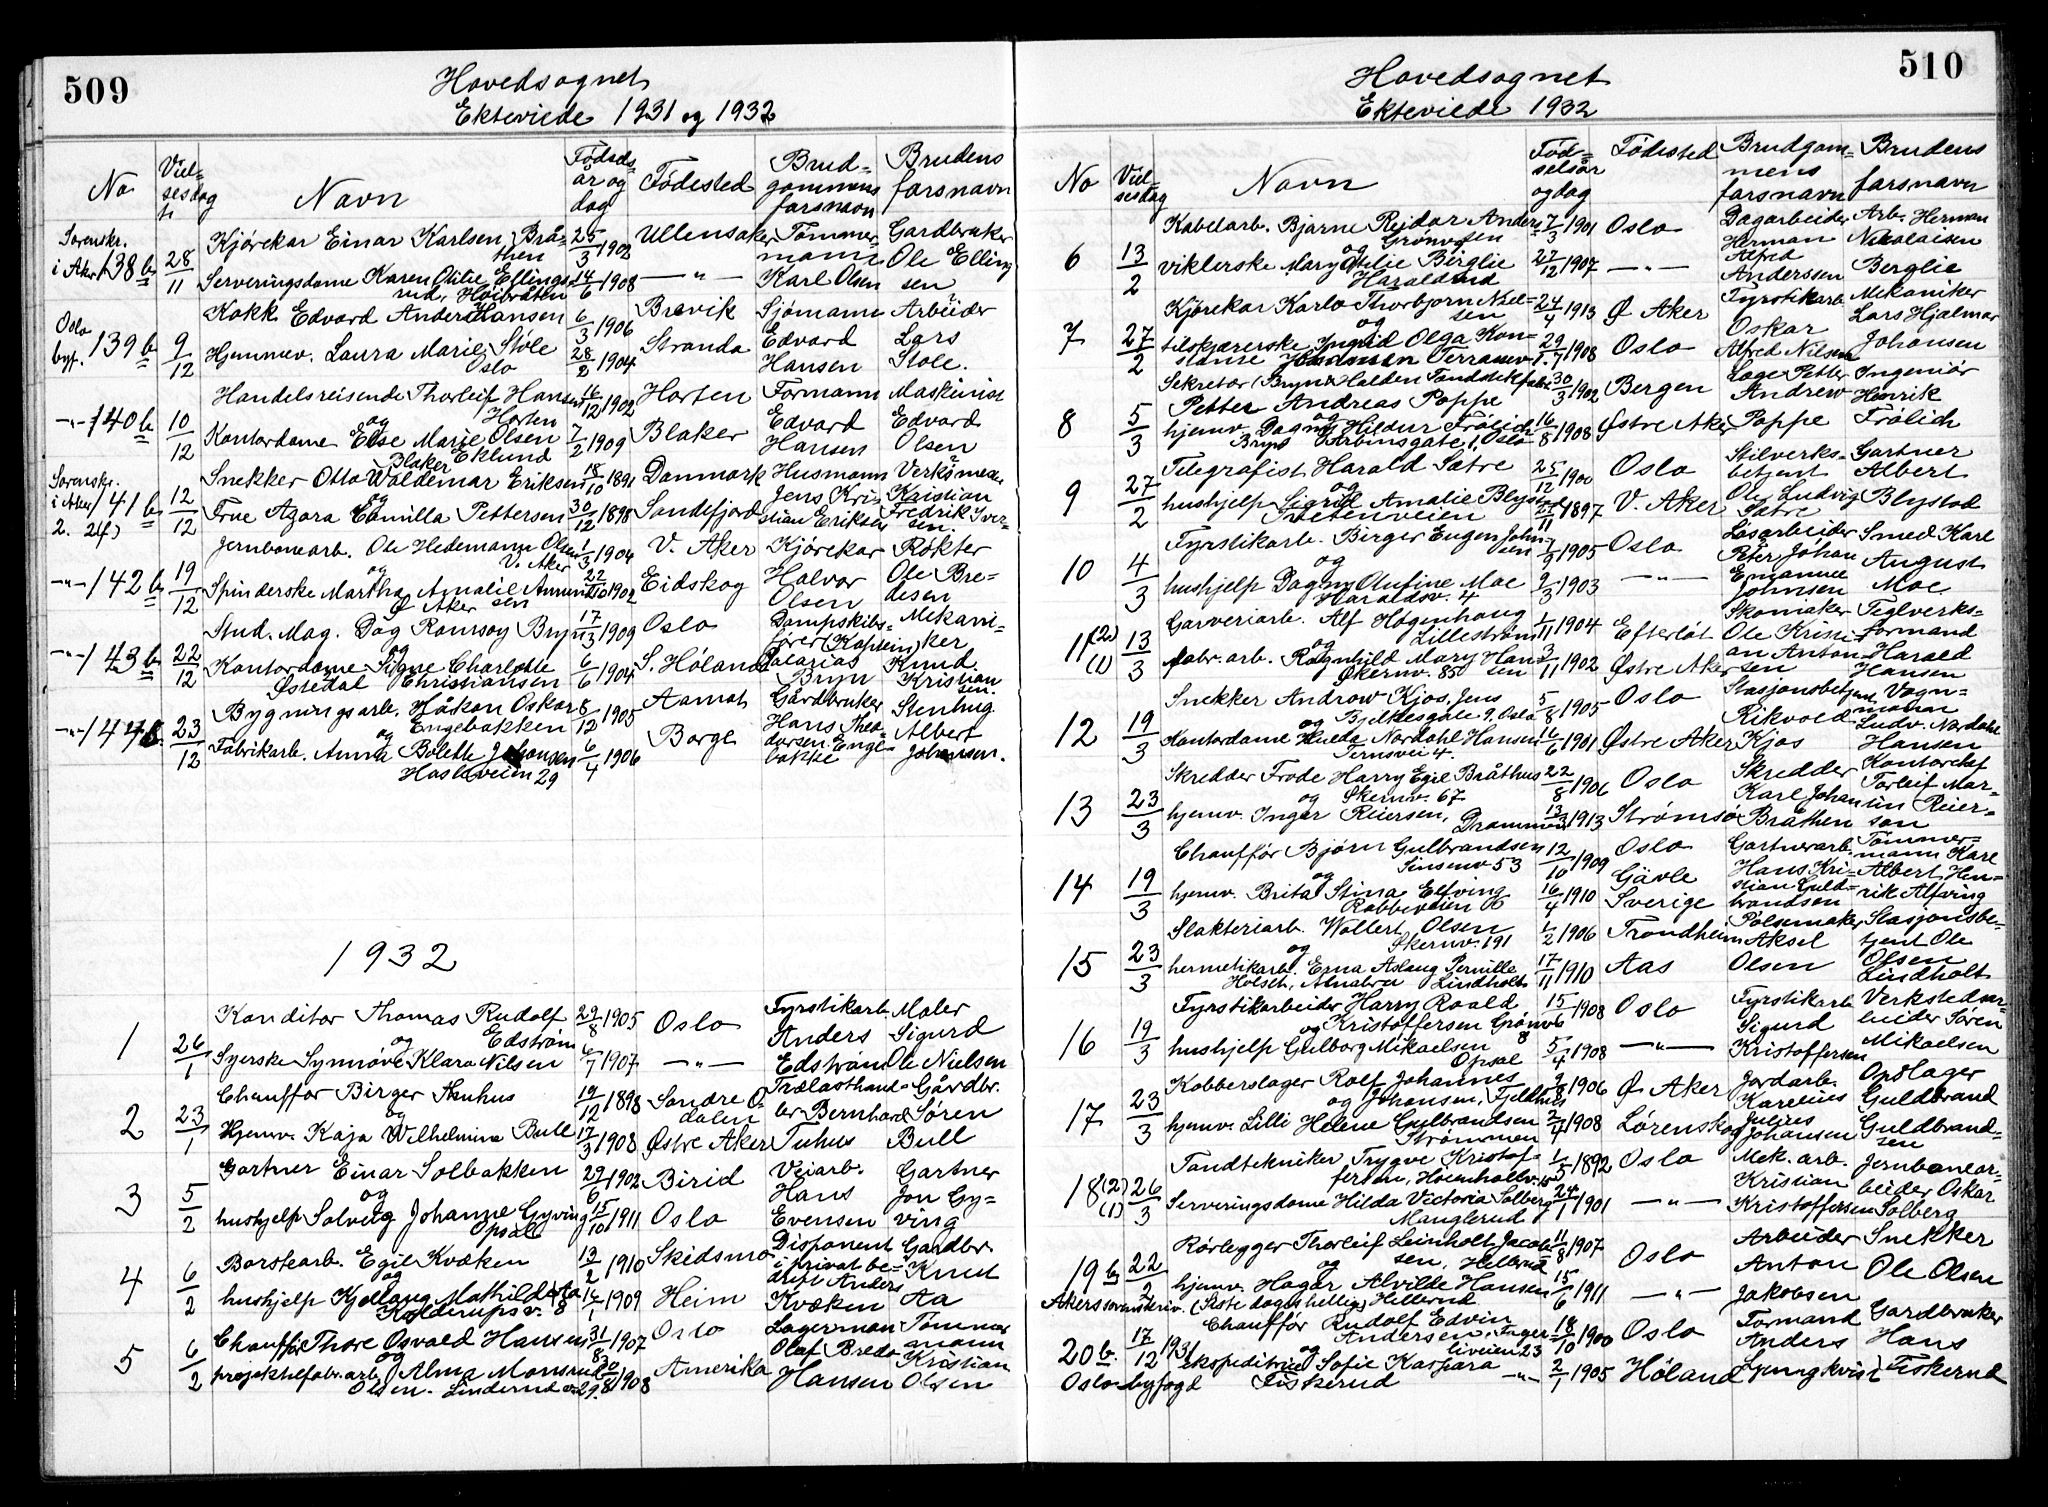 509
Hovedsognet
Ekteviede 1931 og 1932
No
Viel-
sesdag
Navn
Fødsels-
år og
dag
Fødested
Brud-
gommens
farsnavn
Brudens
farsnavn
Sorenskr.
i Aker 138 b
28/11
Kjørekar Einar Karlsen Brå-
then
25/3 1902
Ullensaker
Tømmer-
mann
Karl Olsen
Gardbruker
Ole Elling-
sen
Serveringsdame Karen Otilie Ellings-
rud, Høibråten
14/6 1908
—"—
Oslo
byf. 139 b
9/12
Kokk Edvard Anders Hansen
6/3 1906
Brevik
Sjømann
Edvard
Hansen
Arbeider
Lars
Støle.
Hjemmev. Laura Marie Støle
Oslo
28/2 1904
Stranda
—"— 140 b
10/12
Handelsreisende Thorleif Hansen
og Horten
16/12 1902
Horten
Formann
Edvard
Hansen
Maskinist
Edvard
Olsen
Kontordame Else Marie Olsen
Blaker Eklund
7/2 1909
Blaker
Sorenskr.
i Aker 141 b
2. 2f)
12/12
Snekker Otto Woldemar Eriksen
og
18/10 1891
Danmark
Husmann
Jens Kri-
stian Eriksen
Verksmes.
Kristian
Fredrik Iver-
sen.
Frue Agora Camilla Pettersen
30/12 1898
Sandefjord
—"— 142 b
19/12
Jernbanearb. Ole Hedemann Olsen
og V. Aker
1/3 1904
V. Aker
Kjørekar
Halvor
Olsen
Røkter
Ole Bre-
desen
Spinderske Martha Amalie Amund-
Ø Aker sen
22/10 1902
Eidskog
—"— 143 b
22/12
Stud. Mag. Dag Ramsøy Bryn
og
17/3 1909
Oslo
Dampskibs-
fører (Kaptein)
Bryn
Mekani-
ker
Knud
Kristian
sen.
Kontordame Signe Charlotte
Østedal Christiansen
6/6 1904
S. Høland
—"— 144 b.
23/12
Bygningsarb. Håkon Oskar
og Engebakken
8/12 1905
Aamot
Gårdbruker
Hans Theo-
dorsen Enge-
bakke
Stenhug
Albert
Johansen.
Fabrikarb. Anna Bolette Johansen
Hasleveien 29
6/4 1906
Borge
1932
1
26/1
Konditor Thomas Rudolf
og Edstrøm
29/8 1905
Oslo
Fyrstikarb.
Anders
Edstrøm
Maler
Sigurd
Ole Nielsen
Syerske Synnøve Klara Nilsen
6/7 1907
—"—
2
23/1
Chauffør Birger Tuhus
og
19/12 1898
Søndre O-
dalen
Trælasthand-
ler Bernhard
Tuhus
Gårdbr.
Søren
Bull
Hjemv. Kaja Wilhelmine Bull
17/3 1908
Østre Aker
3
5/2
Gartner Einar Solbakken
og
29/6 1902
Birid
Veiarb.
Hans
Evensen
Gartner
Jon Gy-
ving
hushjelp Solveig Johanne Gyving
Opsal
15/10 1911
Oslo
4
6/2
Børstearb. Egil Kvæken
og
13/2 1910
Skedsmo
Disponent
i privat be-
drift Anders
Kvæken
Gardbr.
Knut
Aa
hushjelp Kjellaug Mathilde Aa
Kolderupsv. 8
14/1 1909
Heim
5
6/2
Chauffør Thore Osvald Hansen
og
31/8 1907
Oslo
Lagermann
Olaf Brede
Hansen
Tømmer
mann
Kristian
Olsen
projektilfabr.arb. Alma Monsrud
Olsen. Linderud v. 29.
20/8 1908
Amerika
510
Hovedsognet
Ekteviede 1932
No
Viel-
sesdag
Navn
Fød-
selsår
og dag
Fødested
Brudgom-
mens
farsnavn
Brudens
farsnavn
6
13/2
Kabelarb. Bjarne Reidar Anders-
og Grønv. sen
7/3 1901
Oslo
Dagarbeider
Herman
Alfred
Anderssen
Arb. Herman
Nikolaisen
Berglie
viklerske Mary Otilie Berglie
Haraldrud
27/12 1907
—"—
7
27/2
Kjørekar Karlo Thorbjørn Niel-
og sen
24/4 1913
Ø Aker
Fyrstikarb.
Oskar
Alfred Nilsen
Mekaniker
Lars Hjalmar
Johansen
tilskjærerske Ingrid Olga Kon-
stanse Johansen Terrassev.
29/1 1908
Oslo
8
5/3
Sekretær (Bryn & Halden Tændstikfabr.
Petter Andreas Poppe
30/3 1902
Bergen
Lage Petter
Andrew
Poppe
Ingeniør
Henrik
Frølich
og
hjemv. Dagny Hildur Frølich
Bryn Arbinsgate 1, Oslo
16/8 1908
Østre Aker
9
27/2
Telegrafist Harald Sætre
og
25/12 1900
Oslo
Stilverks-
betjent
Ole Ludvig
Sætre
Gartner
Albert
Blystad
hushjelp Sigrid Amalie Blystad
Tvetenveien
27/11 1897
V. Aker
10
4/3
Fyrstikarb. Birger Eugen John-
og sen
7/9 1905
Oslo
Løsarbeider
Peter Johan
Emanuel
Johnsen
Smed Karl
August
Moe.
hushjelp Dagny Olufine Moe
Haraldsv. 4
2/3 1903
—"—
11 (2)
(1)
13/3
Garveriarb. Alf Høgenhaug
og Lillestrøm
1/11 1904
Efterløt
Skomaker
Ole Kristi-
an Anton-
sen
Teglverks-
formand
Harald
Hansen
fabr. arb. Ragnhild Mary Han-
Økernv. 85 sen
3/11 1902
Østre Aker
12
19/3
Snekker Andrew Kjos, Jens
og Bjelkesgate 9, Oslo
5/8 1905
Oslo
Stasjonsbetjent
Rikvold
Kjos
Vogn-
mann
Ludv. Nordahl
Hansen
Kontordame Hulda Nordahl Hansen
Ternsvei 4.
16/6 1901
Østre Aker
13
23/3
Skredder Frode Harry Egil Bråthus
og Økernv. 67
22/8 1906
Oslo
Skredder
Karl Johan
Bråthen
Kontorchef
Torleif Mar-
tin Reier-
sen
hjemv. Inger Reiersen, Drammen
13/3 1913
Strømsø
14
19/3
Chauffør Bjørn Gulbrandsen
og Sinsenv. 53
12/10 1909
Oslo
Gartnerarb.
Hans Kri-
stian Guld-
brandsen
Tømmer-
mann Karl
Albert Hen-
rik Alfving
hjemv. Brita Stina Elfving
Rabbeveien 6
16/4 1910
Gävle
Sverige
15
23/3
Slakteriarb. Wollert Olsen
og Økernv. 191
1/2 1906
Trondheim
Pølsemaker
Aksel
Olsen
Stasjonsbe-
tjent Ole
Olsen
Lindholt
hermetikarb. Erna Aslaug Pernille
Holseth, Alnabru Lindholt
17/11 1910
Aas
16
19/3
Fyrstikarbeider Harry Roald
og Kristoffersen Grønv. 6
15/5 1908
Oslo
Fyrstikarb
Sigurd
Kristoffersen
Verkstedar-
beider Søren
Mikaelsen
hushjelp Gulborg Mikaelsen
Opsal
5/4 1908
—"—
17
23/3
Kobberslager Rolf Johannes
og Johansen, Fjellhus
9/8 1906
Ø Aker
Jordarb.
Karelius
Julius
Johansen
Opslager
Guldbrand
Guldbrand-
sen
hjemv. Lilli Helene Gulbrandsen
Strømmen
2/7 1908
Lørenskog
18 (2)
(1)
26/3
Tandtekniker Trygve Kristof-
fersen,
1/5 1892
Oslo
Mek. arb.
Kristian
Kristoffersen
Jernbanear-
beider Oskar
Solberg
Serveringsdame Hilda Victoria Solberg
Manglerud
24/1 1901
—"—
19 b
22/2
Rørlegger Thorleif Leinholt Jacob-
og sen, Hellerud
11/8 1907
Oslo
Arbeider
Anton
Jakobsen
Snekker
Ole Olsen
hjemv. Hagar Alvilde Hansen
Akers sorenskriv. (Siste dages hellige) Hellerud
15/6 1911
—"—
20 b.
Oslo byfogd
17/12 1931
Chauffør Rudolf Edvin
og Andersen, Inger-
liveien 23
18/10 1900
Oslo
Formand
Anders
Ljungkvist
Gardbruker
Hans
Fiskerud
ekspeditrise Sofie Kaspara
Fiskerud —"—
2/1 1905
Høland